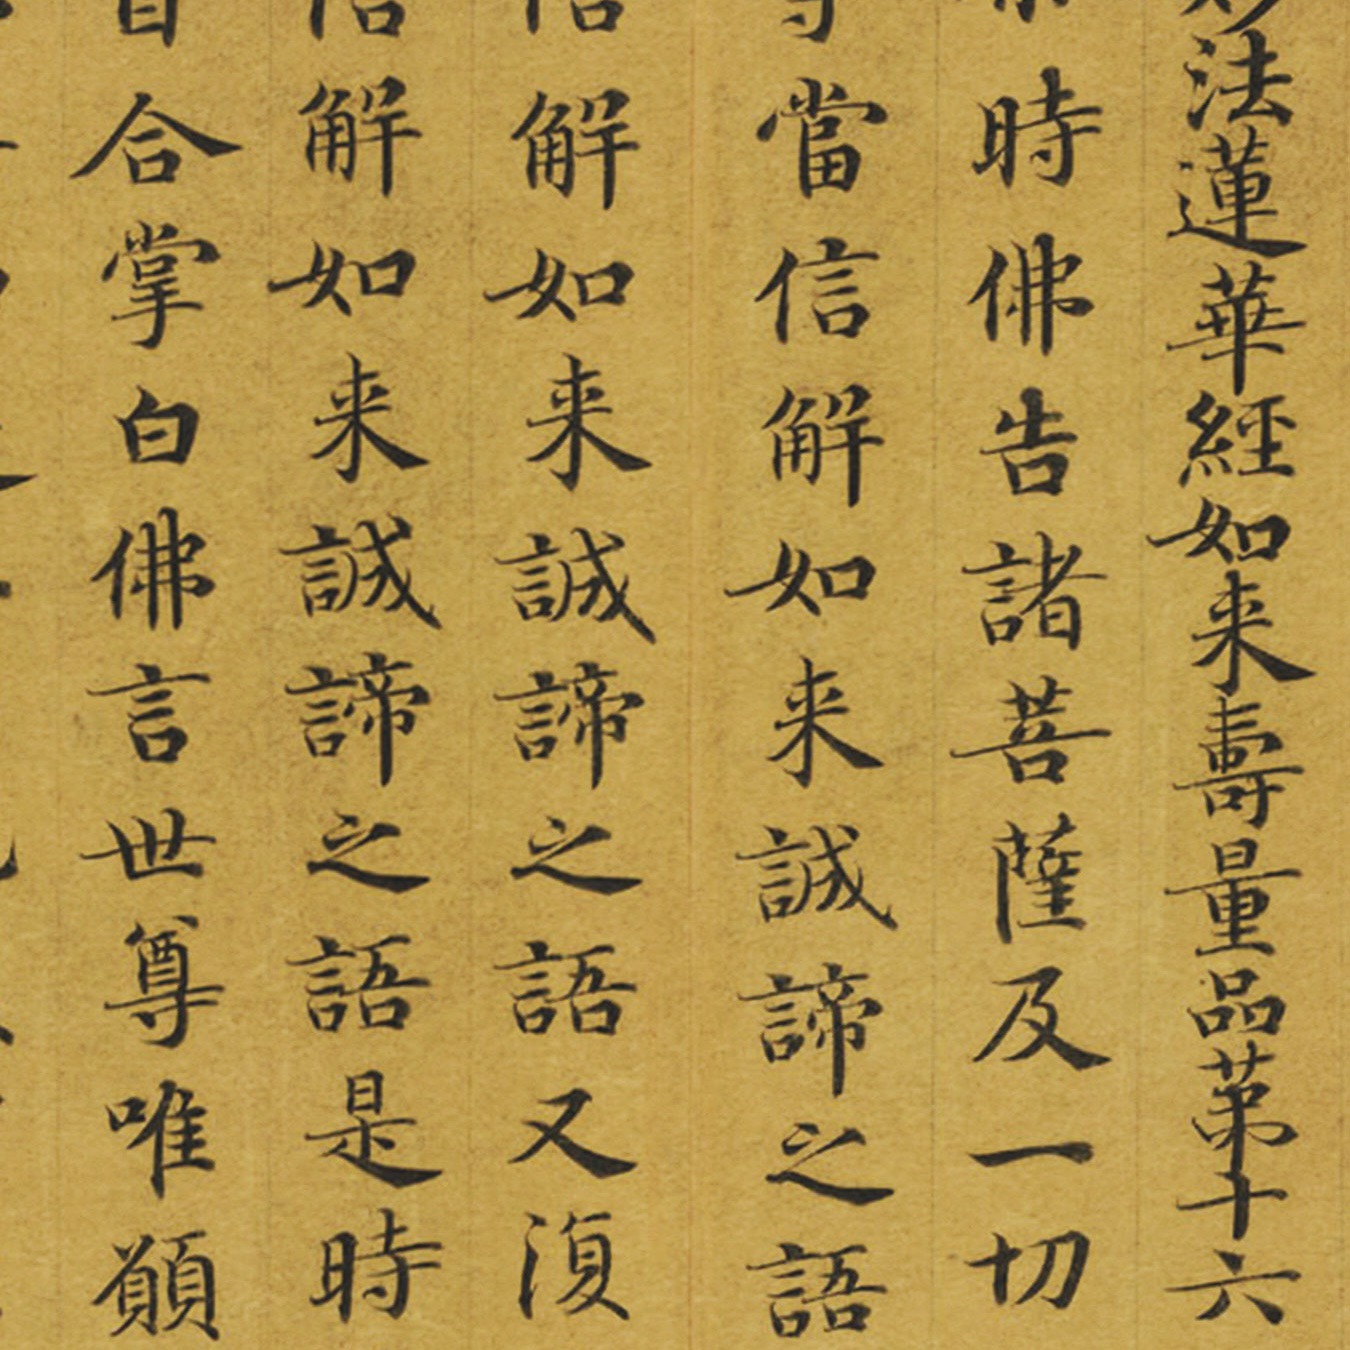 法蓮華經如来壽量品苐十六
時佛告諸菩薩及一切
當信解如来誠諦之語
解如来誠諦之語又復
解如来誠諦之語是時
合掌白佛言世尊唯願